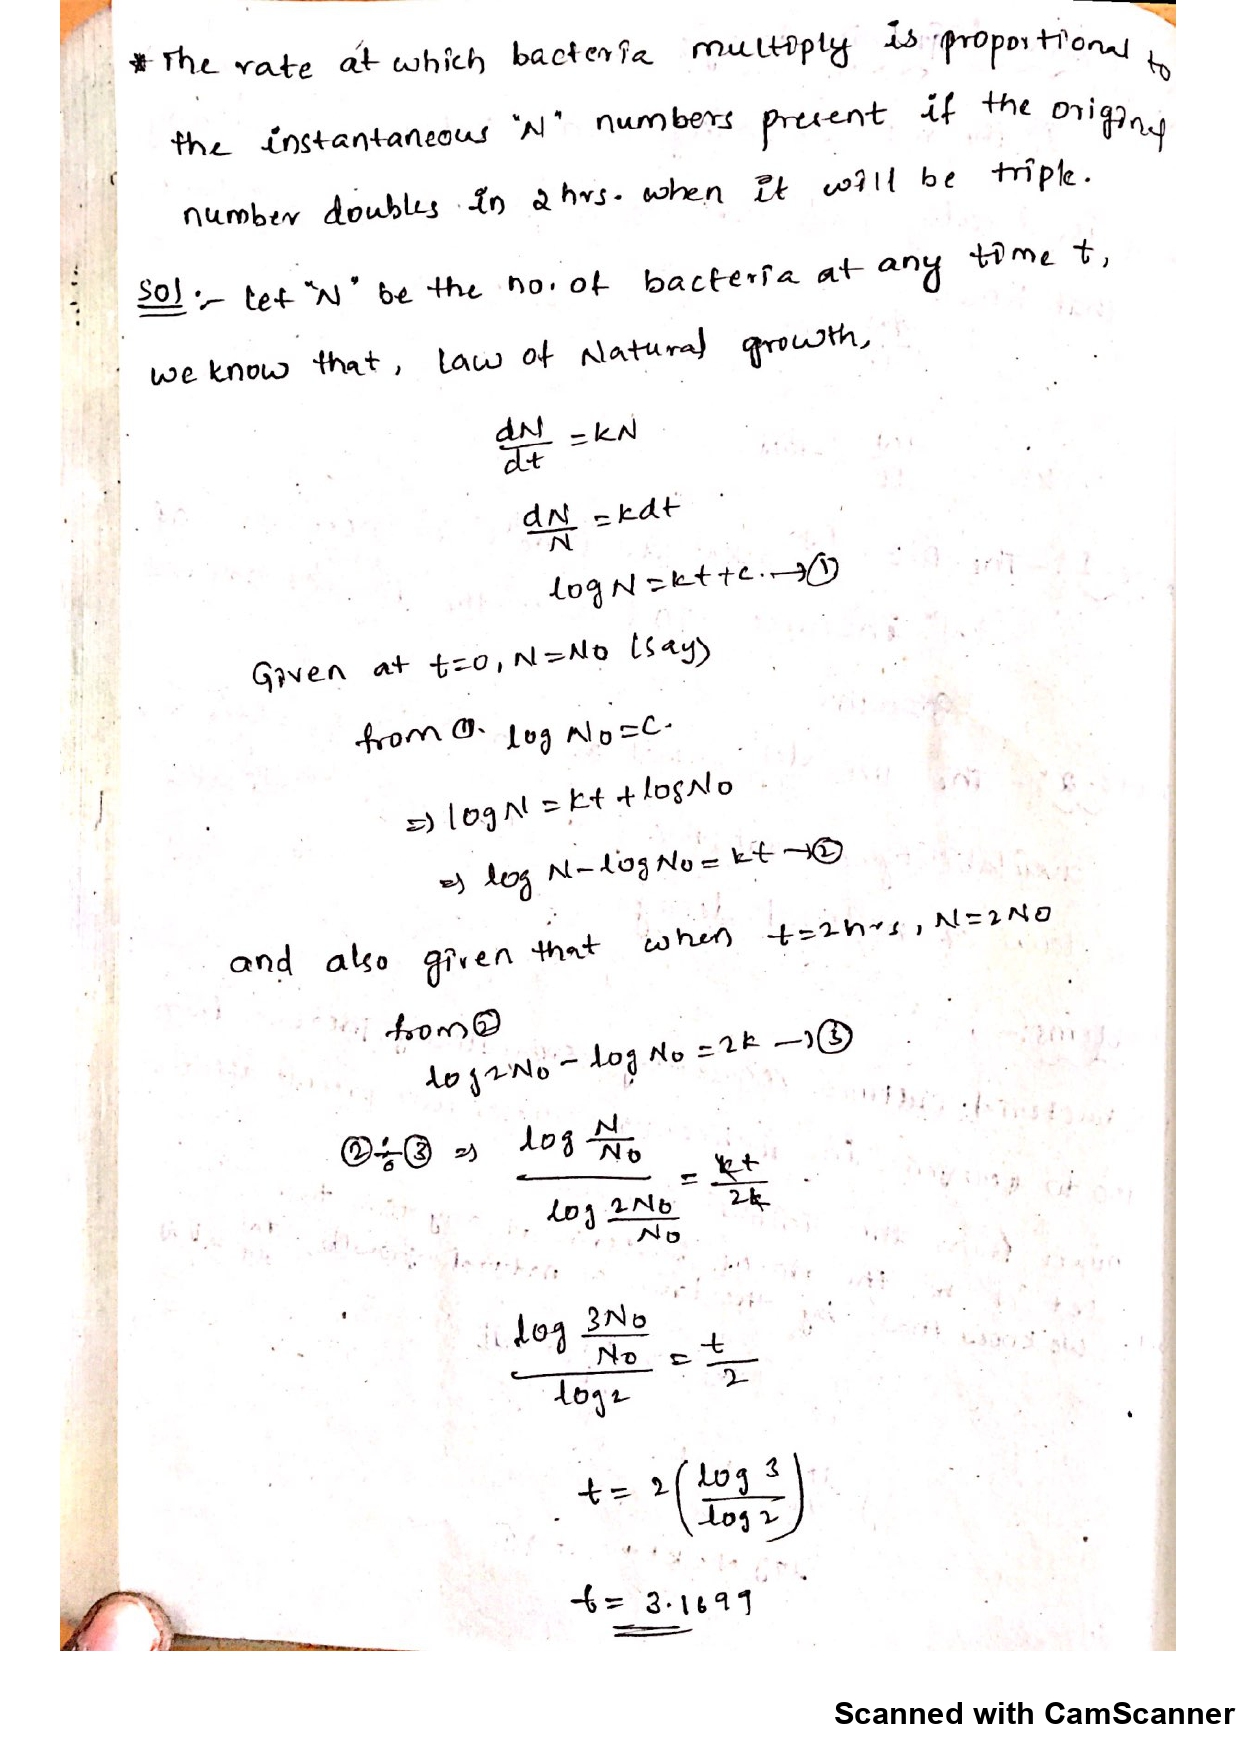 * The rate at which bacteria multiply is proportional to
the instantaneous "N" numbers present if the original
number doubles in 2 hrs. when it will be triple.
Sol :- Let "N" be the no. of bacteria at any time t,
we know that, Law of Natural growth,
dN/dt = kN
dN/N = kdt
log N = kt + c. → ①
Given at t=0, N=N0 (say)
from ①. log N0 = c.
⇒ log N = kt + log N0
⇒ log N - log N0 = kt → ②
and also given that when t=2hrs, N=2N0
from ②
log 2N0 - log N0 = 2k → ③
② ÷ ③ ⇒ (log N/N0)/(log 2N0/N0) = kt/2k
(log 3N0/N0)/(log 2) = t/2
t = 2(log 3/log 2)
t = 3.1699
Scanned with CamScanner